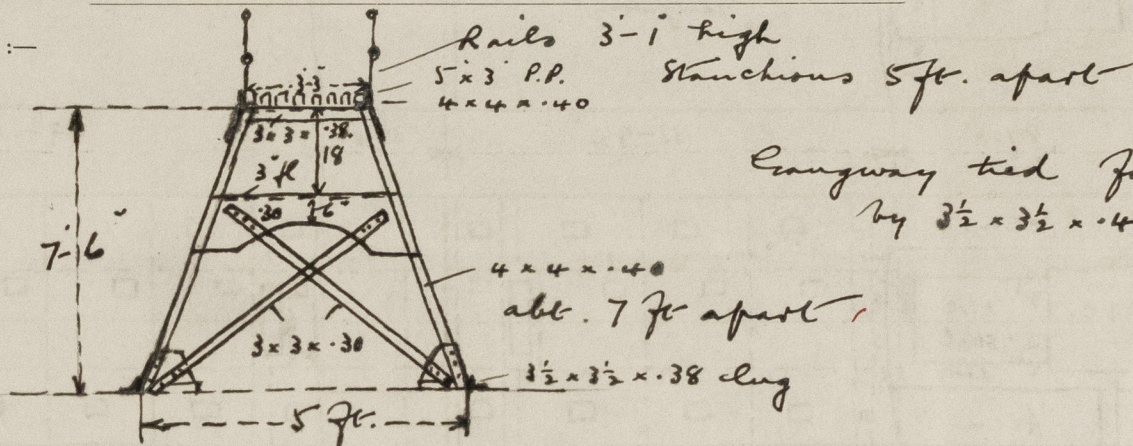 :—
Rails 3'-1" high
5 x 3 P.P.
Stanchions 5 ft. apart
3'-3"
4 x 4 x .40
3 x 3 x .38
18
3" fl
.30
6"
Gangway tied
by 3½ x 3½ x .4
7'-6"
4 x 4 x .40
abt. 7 ft apart
3 x 3 x .30
3½ x 3½ x .38 lug
5 ft.